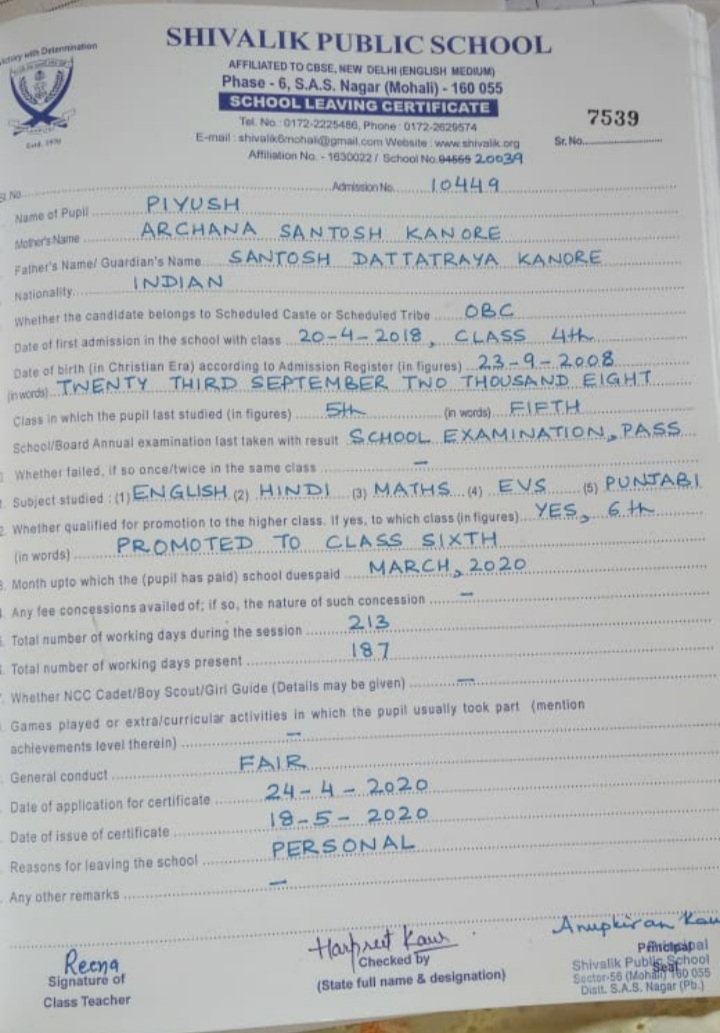 ictory with Determination
SHIVALIK PUBLIC SCHOOL
AFFILIATED TO CBSE, NEW DELHI (ENGLISH MEDIUM)
Phase - 6, S.A.S. Nagar (Mohali) - 160 055
SCHOOL LEAVING CERTIFICATE
Tel. No.: 0172-2225486, Phone : 0172-2629574
E-mail : shivalik6mohali@gmail.com Website : www.shivalik.org
Affiliation No. - 1630022 / School No. 04565 20039
7539
Sr. No.
Estd. 1970
Sl. No. Admission No. 10449
Name of Pupil PIYUSH
Mother's Name ARCHANA SANTOSH KANORE
Father's Name/ Guardian's Name SANTOSH DATTATRAYA KANORE
Nationality INDIAN
Whether the candidate belongs to Scheduled Caste or Scheduled Tribe OBC
Date of first admission in the school with class 20-4-2018, CLASS 4th
Date of birth (in Christian Era) according to Admission Register (in figures) 23-9-2008
(in words) TWENTY THIRD SEPTEMBER TWO THOUSAND EIGHT
Class in which the pupil last studied (in figures) 5th (in words) FIFTH
School/Board Annual examination last taken with result SCHOOL EXAMINATION, PASS
Whether failed, if so once/twice in the same class –
Subject studied : (1) ENGLISH (2) HINDI (3) MATHS (4) EVS (5) PUNJABI
Whether qualified for promotion to the higher class. If yes, to which class (in figures) YES, 6th
(in words) PROMOTED TO CLASS SIXTH
Month upto which the (pupil has paid) school duespaid MARCH, 2020
Any fee concessions availed of; if so, the nature of such concession –
Total number of working days during the session 213
Total number of working days present 187
Whether NCC Cadet/Boy Scout/Girl Guide (Details may be given) –
Games played or extra/curricular activities in which the pupil usually took part (mention
achievements level therein) –
General conduct FAIR
Date of application for certificate 24-4-2020
Date of issue of certificate 18-5-2020
Reasons for leaving the school PERSONAL
Any other remarks –
Reena
Signature of
Class Teacher
Harpreet Kaur
Checked by
(State full name & designation)
Anupkiran Kau
Principal
Seal
Principal
Shivalik Public School
Sector-56 (Mohali) 160 055
Distt. S.A.S. Nagar (Pb.)